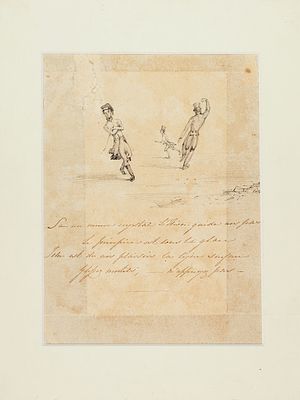 Sur un mince crystal l'hiver guide nos pas
Le précipice est sous la glace
Telle est de nos plaisirs la légère surface
Glissez mortels, — n'appuyez pas —